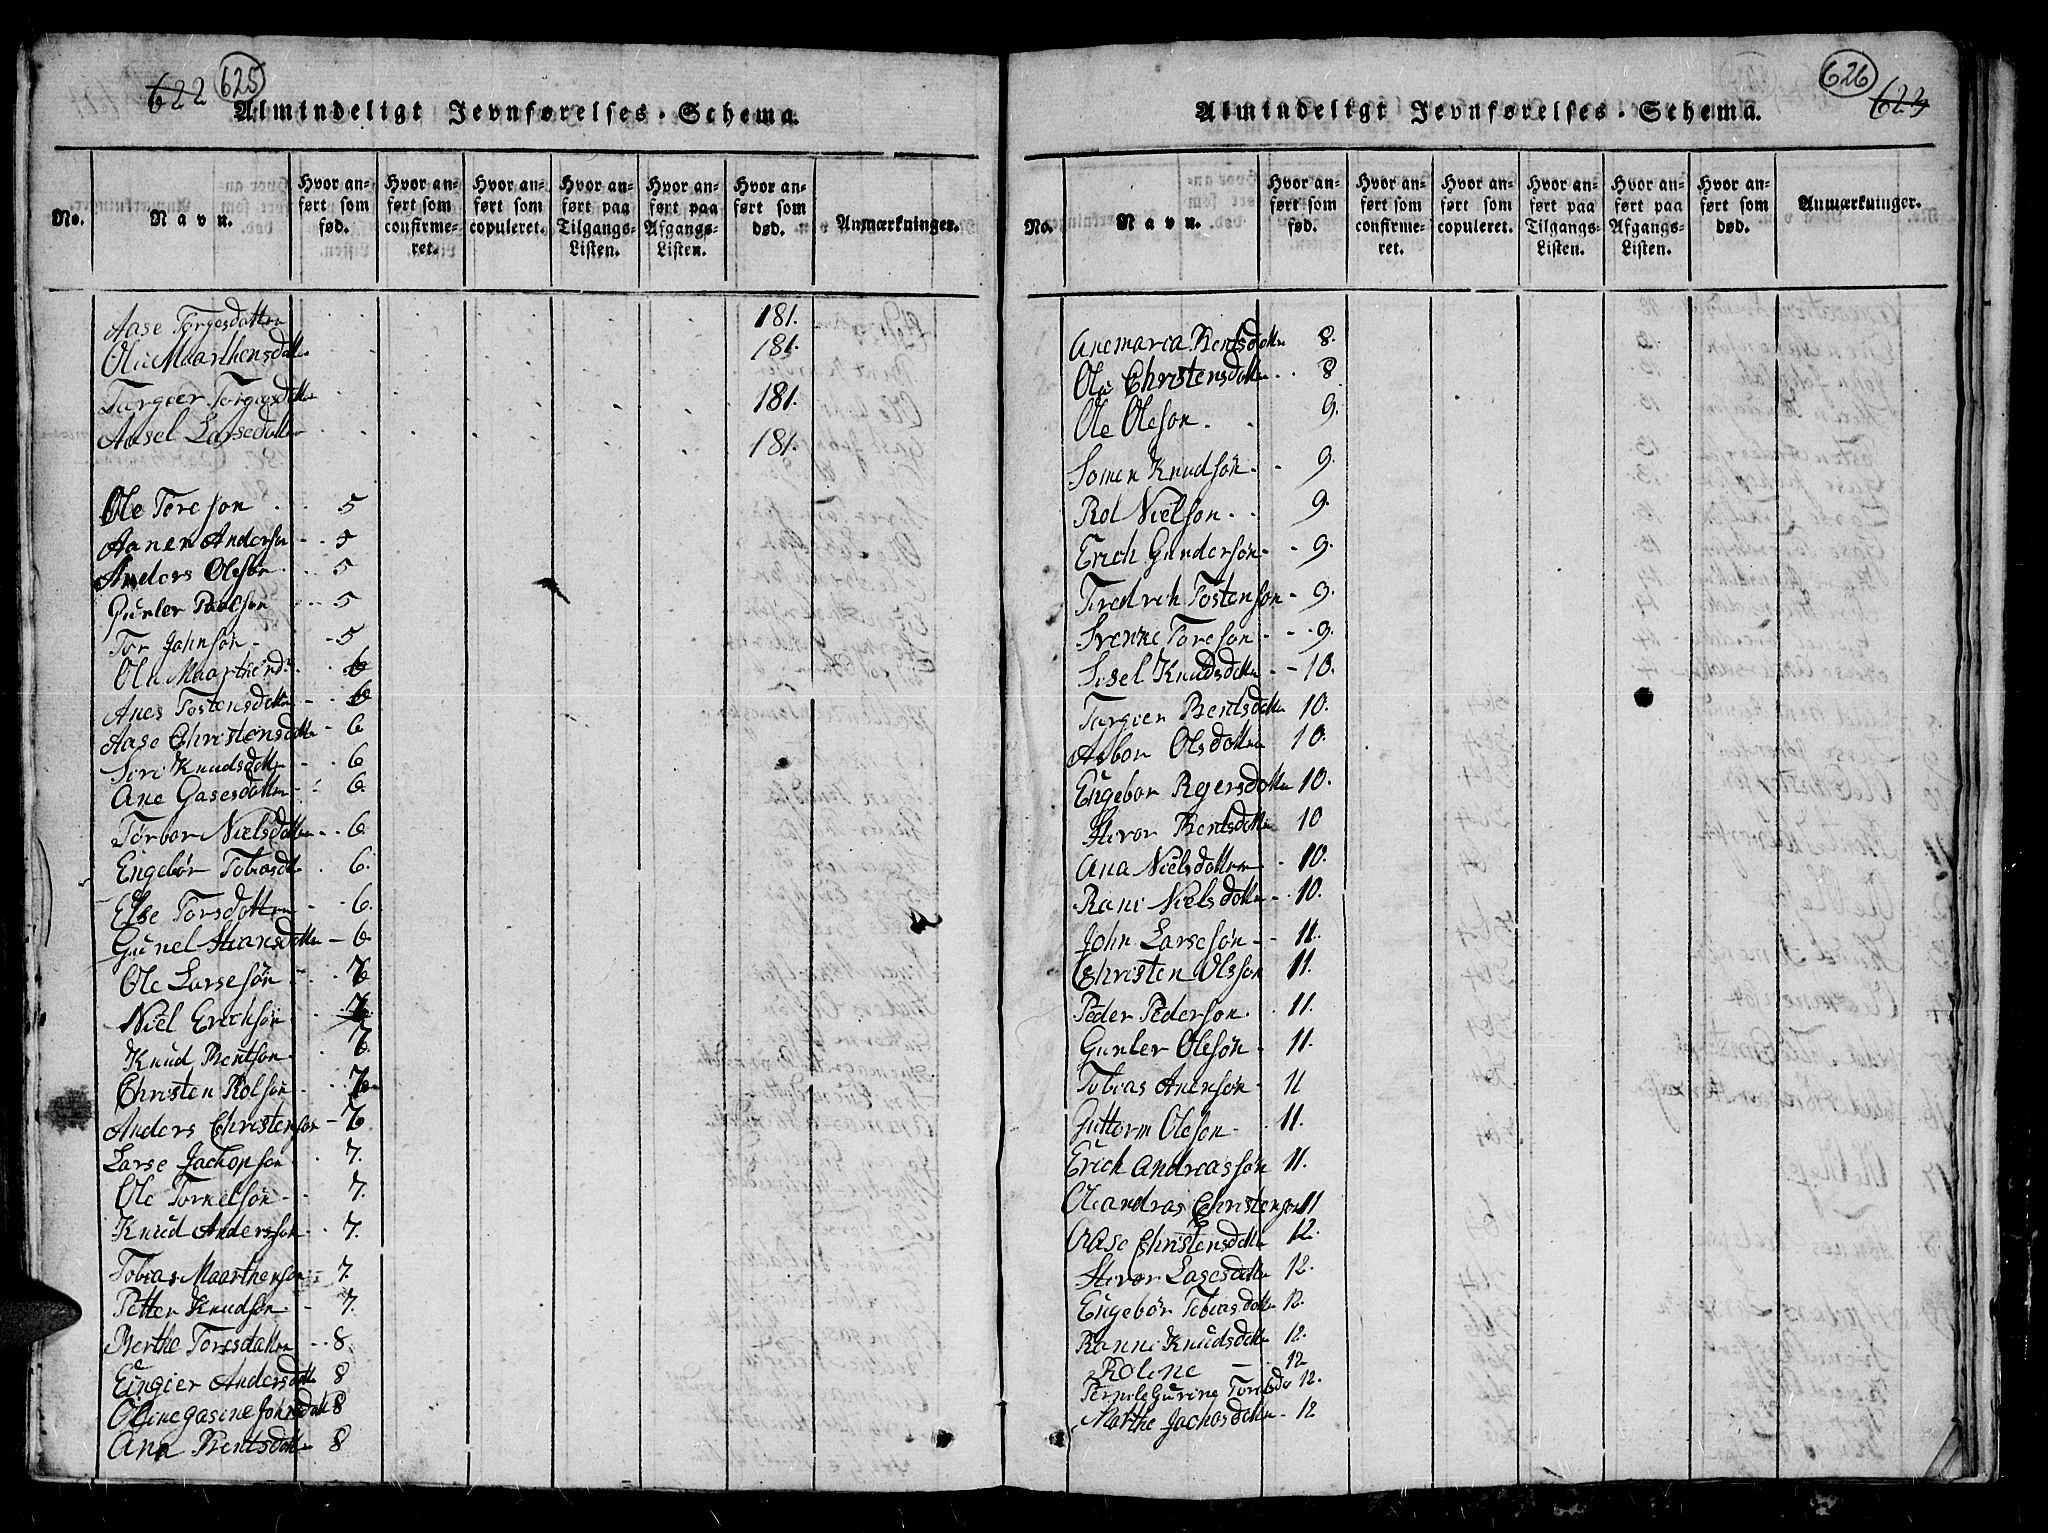 622 625
Almindeligt Jevnførelses-Schema.
No. Navn. Hvor anført som fød. Hvor anført som confirmeret. Hvor anført som copuleret. Hvor anført paa Tilgangs-Listen. Hvor anført paa Afgangs-Listen. Hvor anført som død. Anmærkninger.
Aase Torgesdatter 181.
Ole Maarthensdatter 181.
Targier Torgiesdatter 181.
Aasel Larsedatter 181.
Ole Tereson 5
Aanen Anderson 5
Anders Oleson 5
Gunler Paalson 5
Tor Johnson 5
Ole Maarthensd 6
Anes Tostensdatter 6
Aase Christensdatter 6
Siri Knudsdatter 6
Ane Gasesdatter 6
Torbor Nielsdatter 6
Engebør Tobiasd 6.
Else Torsdatter 6.
Gunel Stiansdatter 6
Ole Larsesøn 7
Niel Erichsøn 7
Knud Bentson 7
Christen Rolson 7
Anders Christenson 7
Larse Jachopson 7.
Ole Tornelson 7.
Knud Andersson 7.
Tobias Maarthenson 7.
Petter Knudson 7.
Berthe Torsdatter 8.
Eingier Andersdatter 8
Olinegasine Johnsdatt 8
Ana Bentsdatter 8
626 623
Almindeligt Jevnførelses-Schema.
No. Navn. Hvor anført som fød. Hvor anført som confirmeret. Hvor anført som copuleret. Hvor anført paa Tilgangs-Listen. Hvor anført paa Afgangs-Listen. Hvor anført som død. Anmærkninger.
Anemarea Bentsdatter 8.
Ole Christensdatter 8
Ole Oleson 9.
Somen Knudsøn 9.
Rol Nielson 9.
Erich Gunderson 9.
Fredrich Tostenson 9.
Svenne Toreson 9.
Sisel Knudsdatter 10.
Targier Bentsdatter 10.
Asbor Olsdatter 10.
Engebor Reiersdatter 10.
Stivor Bentsdatter 10
Ana Nielsdatter 10.
Rani Nielsdatter 10.
John Larsesøn 11.
Christen Olsson 11.
Peder Pederson 11.
Gunler Oleson 11.
Tobias Anensøn 11
Guttorm Oleson 11.
Erich Andreasson 11.
Oleandras Christenson 11
Aase Christensdatter 12.
Stivor Lasesdatter 12.
Engebør Tobiasdatter 12.
Ranni Knudsdatter 12.
Roline — 12
Pernile Gurine Torelsda 12.
Marthe Jachosdatter 12